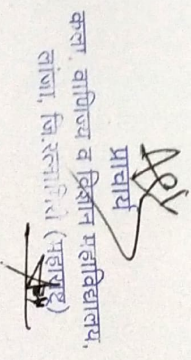 प्राचार्य
कला, वाणिज्य व विज्ञान महाविद्यालय,
लांजा, जि.रत्नागिरी (महाराष्ट्र)